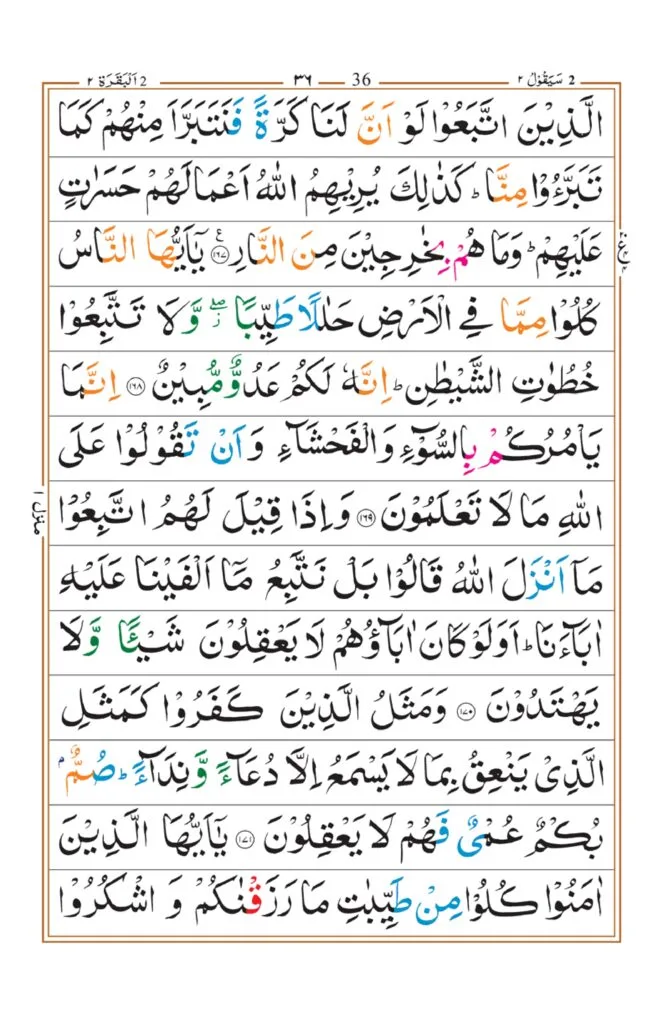 2 سَيَقُوْلُ ٢
36
٣٦
2 اَلْبَقَرَة ٢
الَّذِيْنَ اتَّبَعُوْا لَوْ اَنَّ لَنَا كَرَّةً فَنَتَبَرَّاَ مِنْهُمْ كَمَا
تَبَرَّءُوْا مِنَّا ؕ كَذٰلِكَ يُرِيْهِمُ اللّٰهُ اَعْمَالَهُمْ حَسَرٰتٍ
عَلَيْهِمْ ؕ وَمَا هُمْ بِخٰرِجِيْنَ مِنَ النَّارِ ۧ ﴿١٦٧﴾ يٰۤاَيُّهَا النَّاسُ
كُلُوْا مِمَّا فِي الْاَرْضِ حَلٰلًا طَيِّبًا ۖ ز وَّلَا تَتَّبِعُوْا
خُطُوٰتِ الشَّيْطٰنِ ؕ اِنَّهٗ لَكُمْ عَدُوٌّ مُّبِيْنٌ ﴿١٦٨﴾ اِنَّمَا
يَاْمُرُكُمْ بِالسُّوْٓءِ وَالْفَحْشَآءِ وَاَنْ تَقُوْلُوْا عَلَى
اللّٰهِ مَا لَا تَعْلَمُوْنَ ﴿١٦٩﴾ وَاِذَا قِيْلَ لَهُمُ اتَّبِعُوْا
مَاۤ اَنْزَلَ اللّٰهُ قَالُوْا بَلْ نَتَّبِعُ مَاۤ اَلْفَيْنَا عَلَيْهِ
اٰبَآءَنَا ؕ اَوَلَوْ كَانَ اٰبَآؤُهُمْ لَا يَعْقِلُوْنَ شَيْـًٔا وَّلَا
يَهْتَدُوْنَ ﴿١٧٠﴾ وَمَثَلُ الَّذِيْنَ كَفَرُوْا كَمَثَلِ
الَّذِيْ يَنْعِقُ بِمَا لَا يَسْمَعُ اِلَّا دُعَآءً وَّنِدَآءً ؕ صُمٌّۢ
بُكْمٌ عُمْيٌ فَهُمْ لَا يَعْقِلُوْنَ ﴿١٧١﴾ يٰۤاَيُّهَا الَّذِيْنَ
اٰمَنُوْا كُلُوْا مِنْ طَيِّبٰتِ مَا رَزَقْنٰكُمْ وَ اشْكُرُوْا
منزل ١